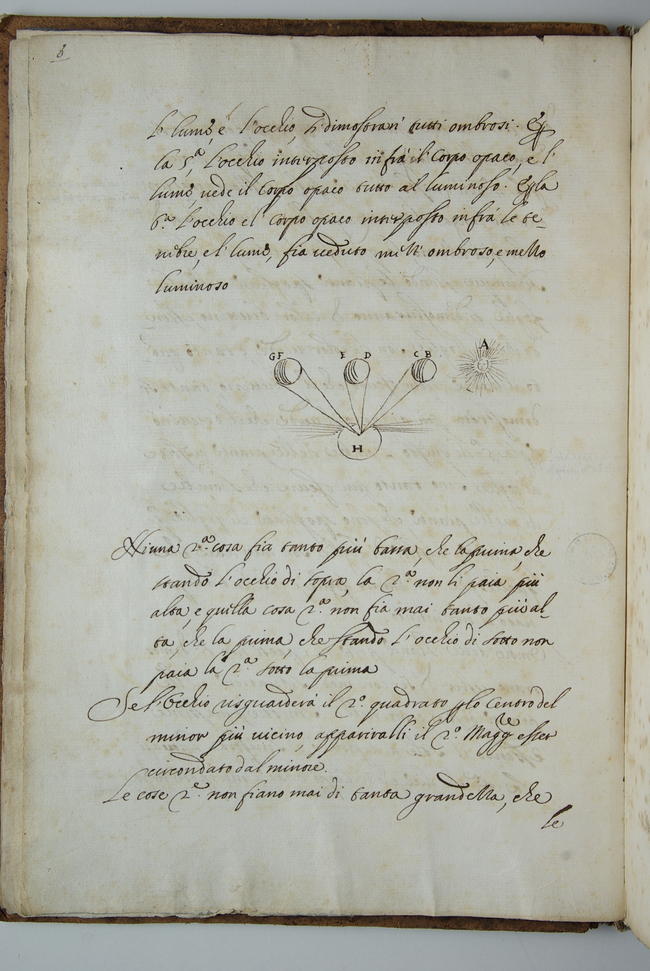 8
lume, é l'occhio, si dimostrarà tutti ombrosi. Per
la 5.ª l'occhio interposto infrà il corpo opaco, e l'
lume vede il corpo opaco tutto al luminoso. Per la
6.ª l'occhio el corpo opaco interposto infrà le te-
nibre, e l' lume, fia veduto mezzi ombroso, e mezzo
luminoso
A
GF E D C B
H
Niuna 2.ª cosa fia tanto più bassa, che la prima, che
stando l'occhio di sopra, la 2.ª non li paia più
alta, e quella cosa 2.ª non fia mai tanto più al-
ta, che la prima che stando l'occhio di sotto non
paia la 2.ª sotto la prima
Se l'Occhio risguarderà il 2.º quadrato per lo centro del
minor più vicino appariralli il 2.º Magg.re esser
circondato dal minore.
Le cose 2.e non fiano mai di tanta grandezza, che
le